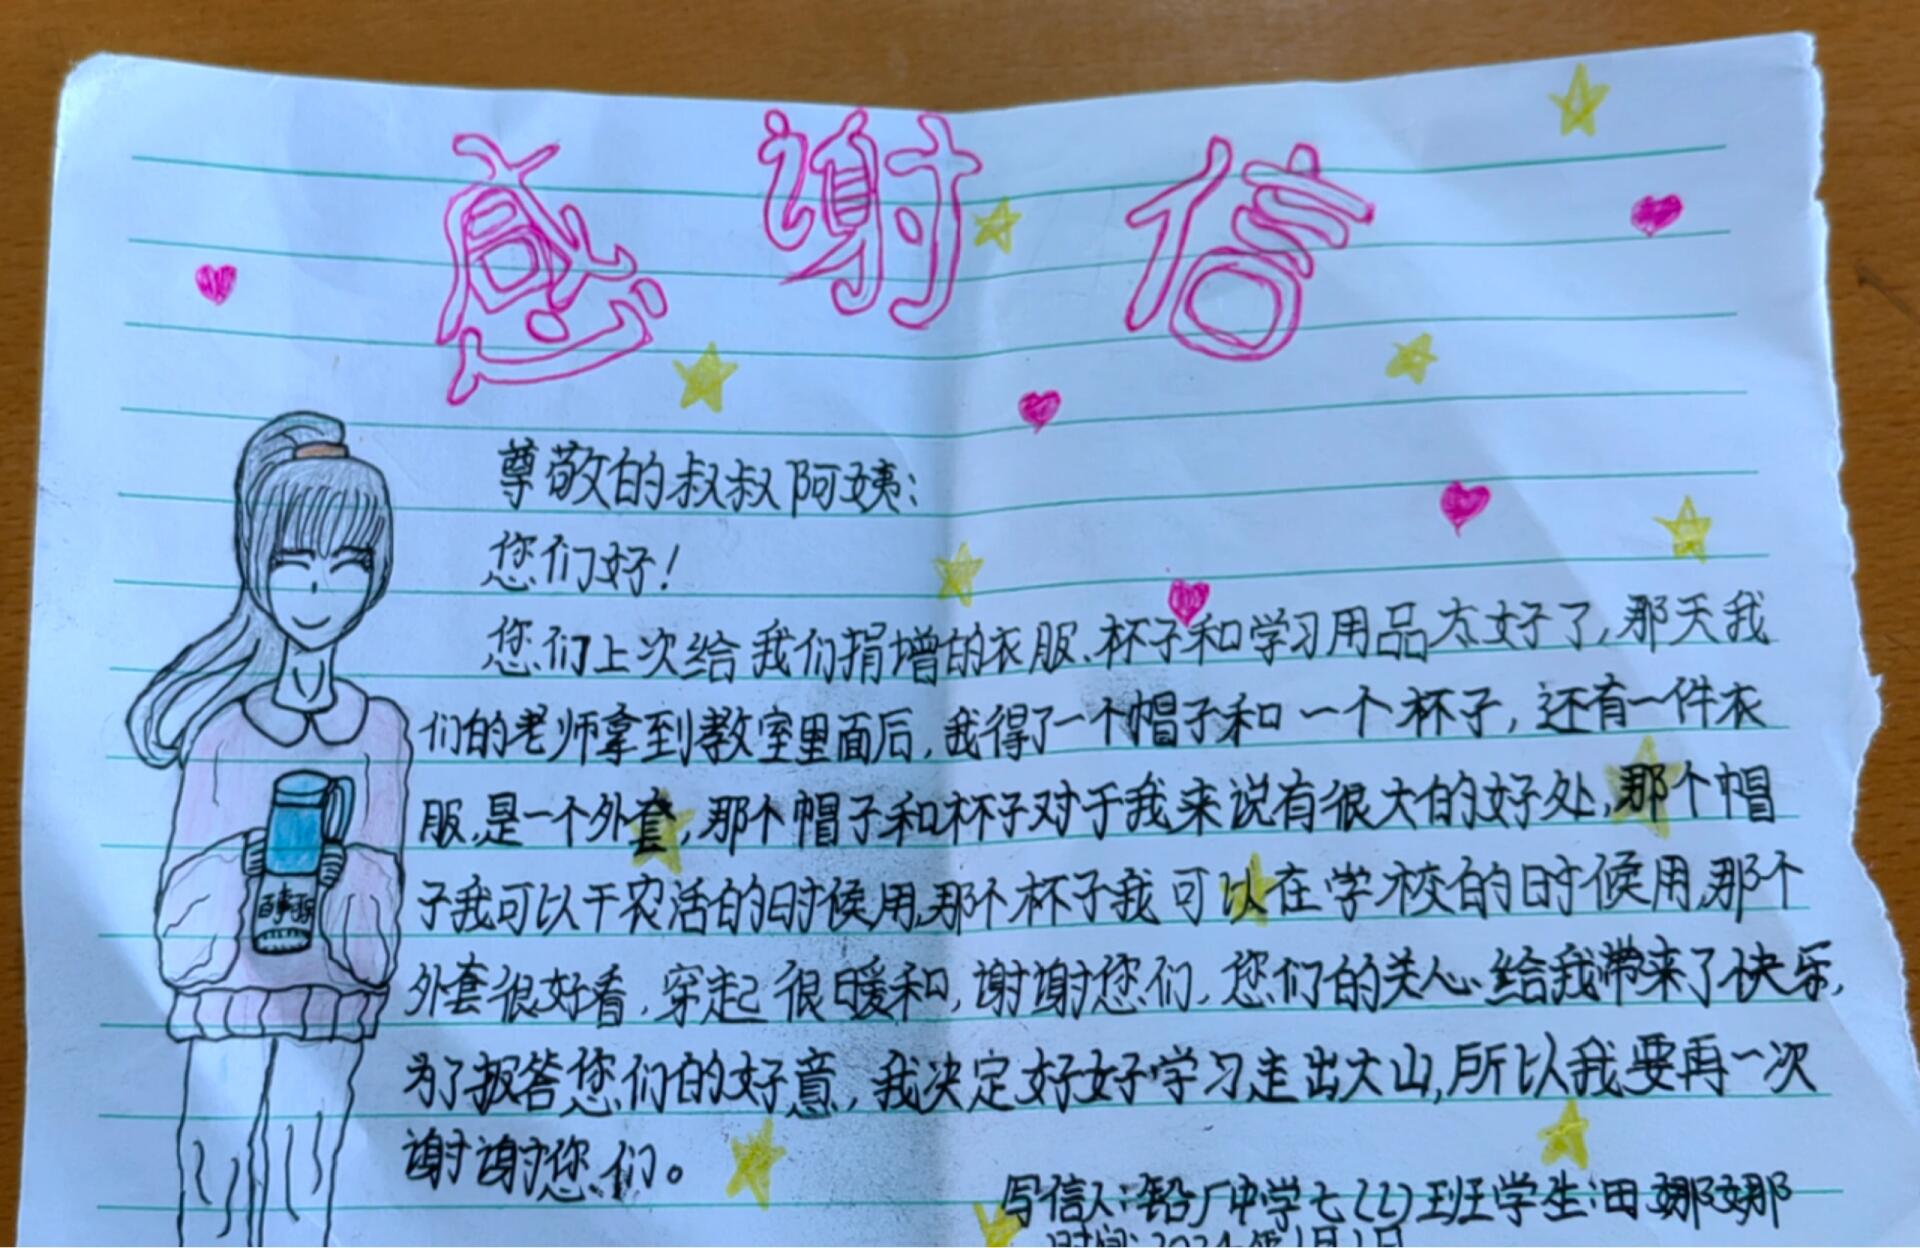 感谢信
尊敬的叔叔阿姨：
您们好！
您们上次给我们捐增的衣服、杯子和学习用品太好了，那天我
们的老师拿到教室里面后，我得了一个帽子和一个杯子，还有一件衣
服，是一个外套，那个帽子和杯子对于我来说有很大的好处，那个帽
子我可以干农活的时候用，那个杯子我可以在学校的时候用，那个
外套很好看，穿起很暖和，谢谢您们，您们的关心给我带来了快乐，
为了报答您们的好意，我决定好好学习走出大山，所以我要再一次
谢谢您们。
写信人：铅厂中学七（2）班学生：田娜娜
时间：2024年1月1日